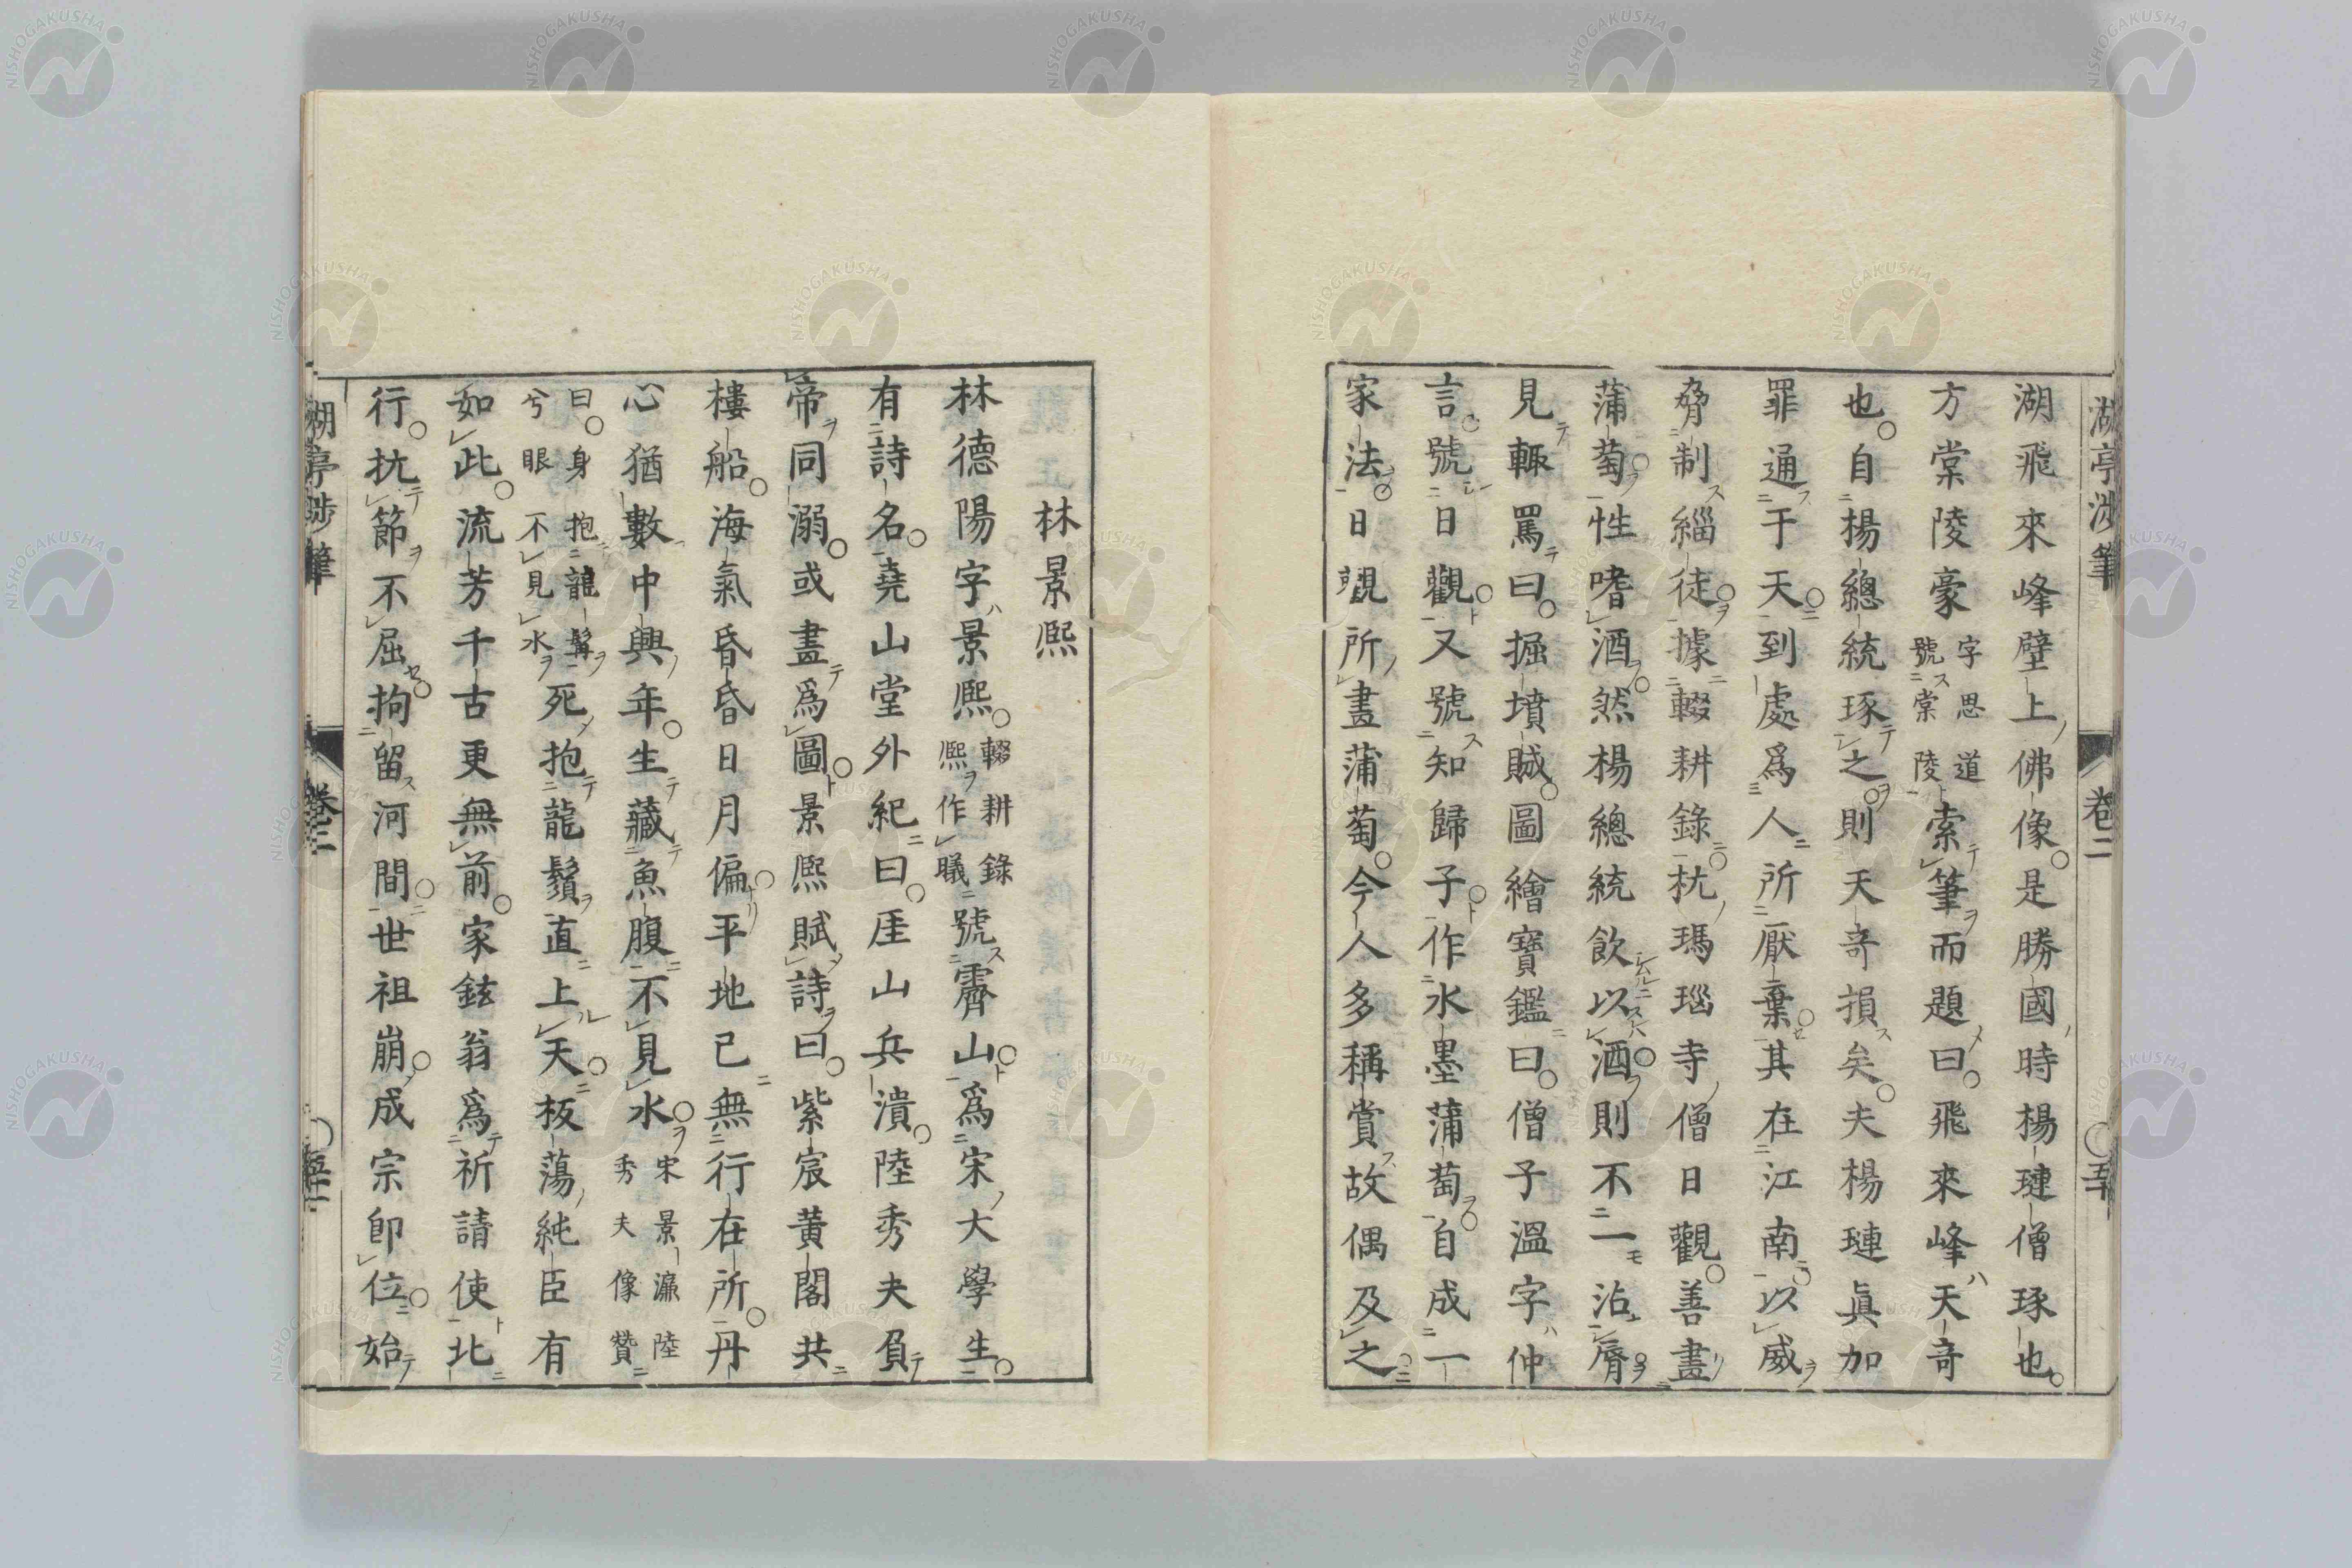 湖亭渉筆 卷二 ○五十
湖飛來峰壁上佛像是勝國時楊璉僧琢也
方棠陵豪字思道號棠陵索筆而題曰飛來峰天奇
也自楊總統琢之則天奇損矣夫楊璉眞加
罪通于天到處爲人所厭棄其在江南以威
脅制緇徒據輟耕錄杭瑪瑙寺僧日觀善畫
蒲萄性嗜酒然楊總統飲以酒則不一沾脣
見輒罵曰掘墳賊圖繪寶鑑曰僧子溫字仲
言號日觀又號知歸子作水墨蒲萄自成一
家法日觀所畫蒲萄今人多稱賞故偶及之
林景熙
林德陽字景熙輟耕錄熙作曦號霽山爲宋大學生
有詩名堯山堂外紀曰厓山兵潰陸秀夫負
帝同溺或畫爲圖景熙賦詩曰紫宸黄閣共
樓船海氣昏昏日月偏平地已無行在所丹
心猶數中興年生藏魚腹不見水宋景濂陸秀夫像贊
曰身抱龍髯兮眼不見水死抱龍鬚直上天板蕩純臣有
如此流芳千古更無前家鉉翁爲祈請使北
行抗節不屈拘留河間世祖崩成宗卽位始
湖亭渉筆 卷二